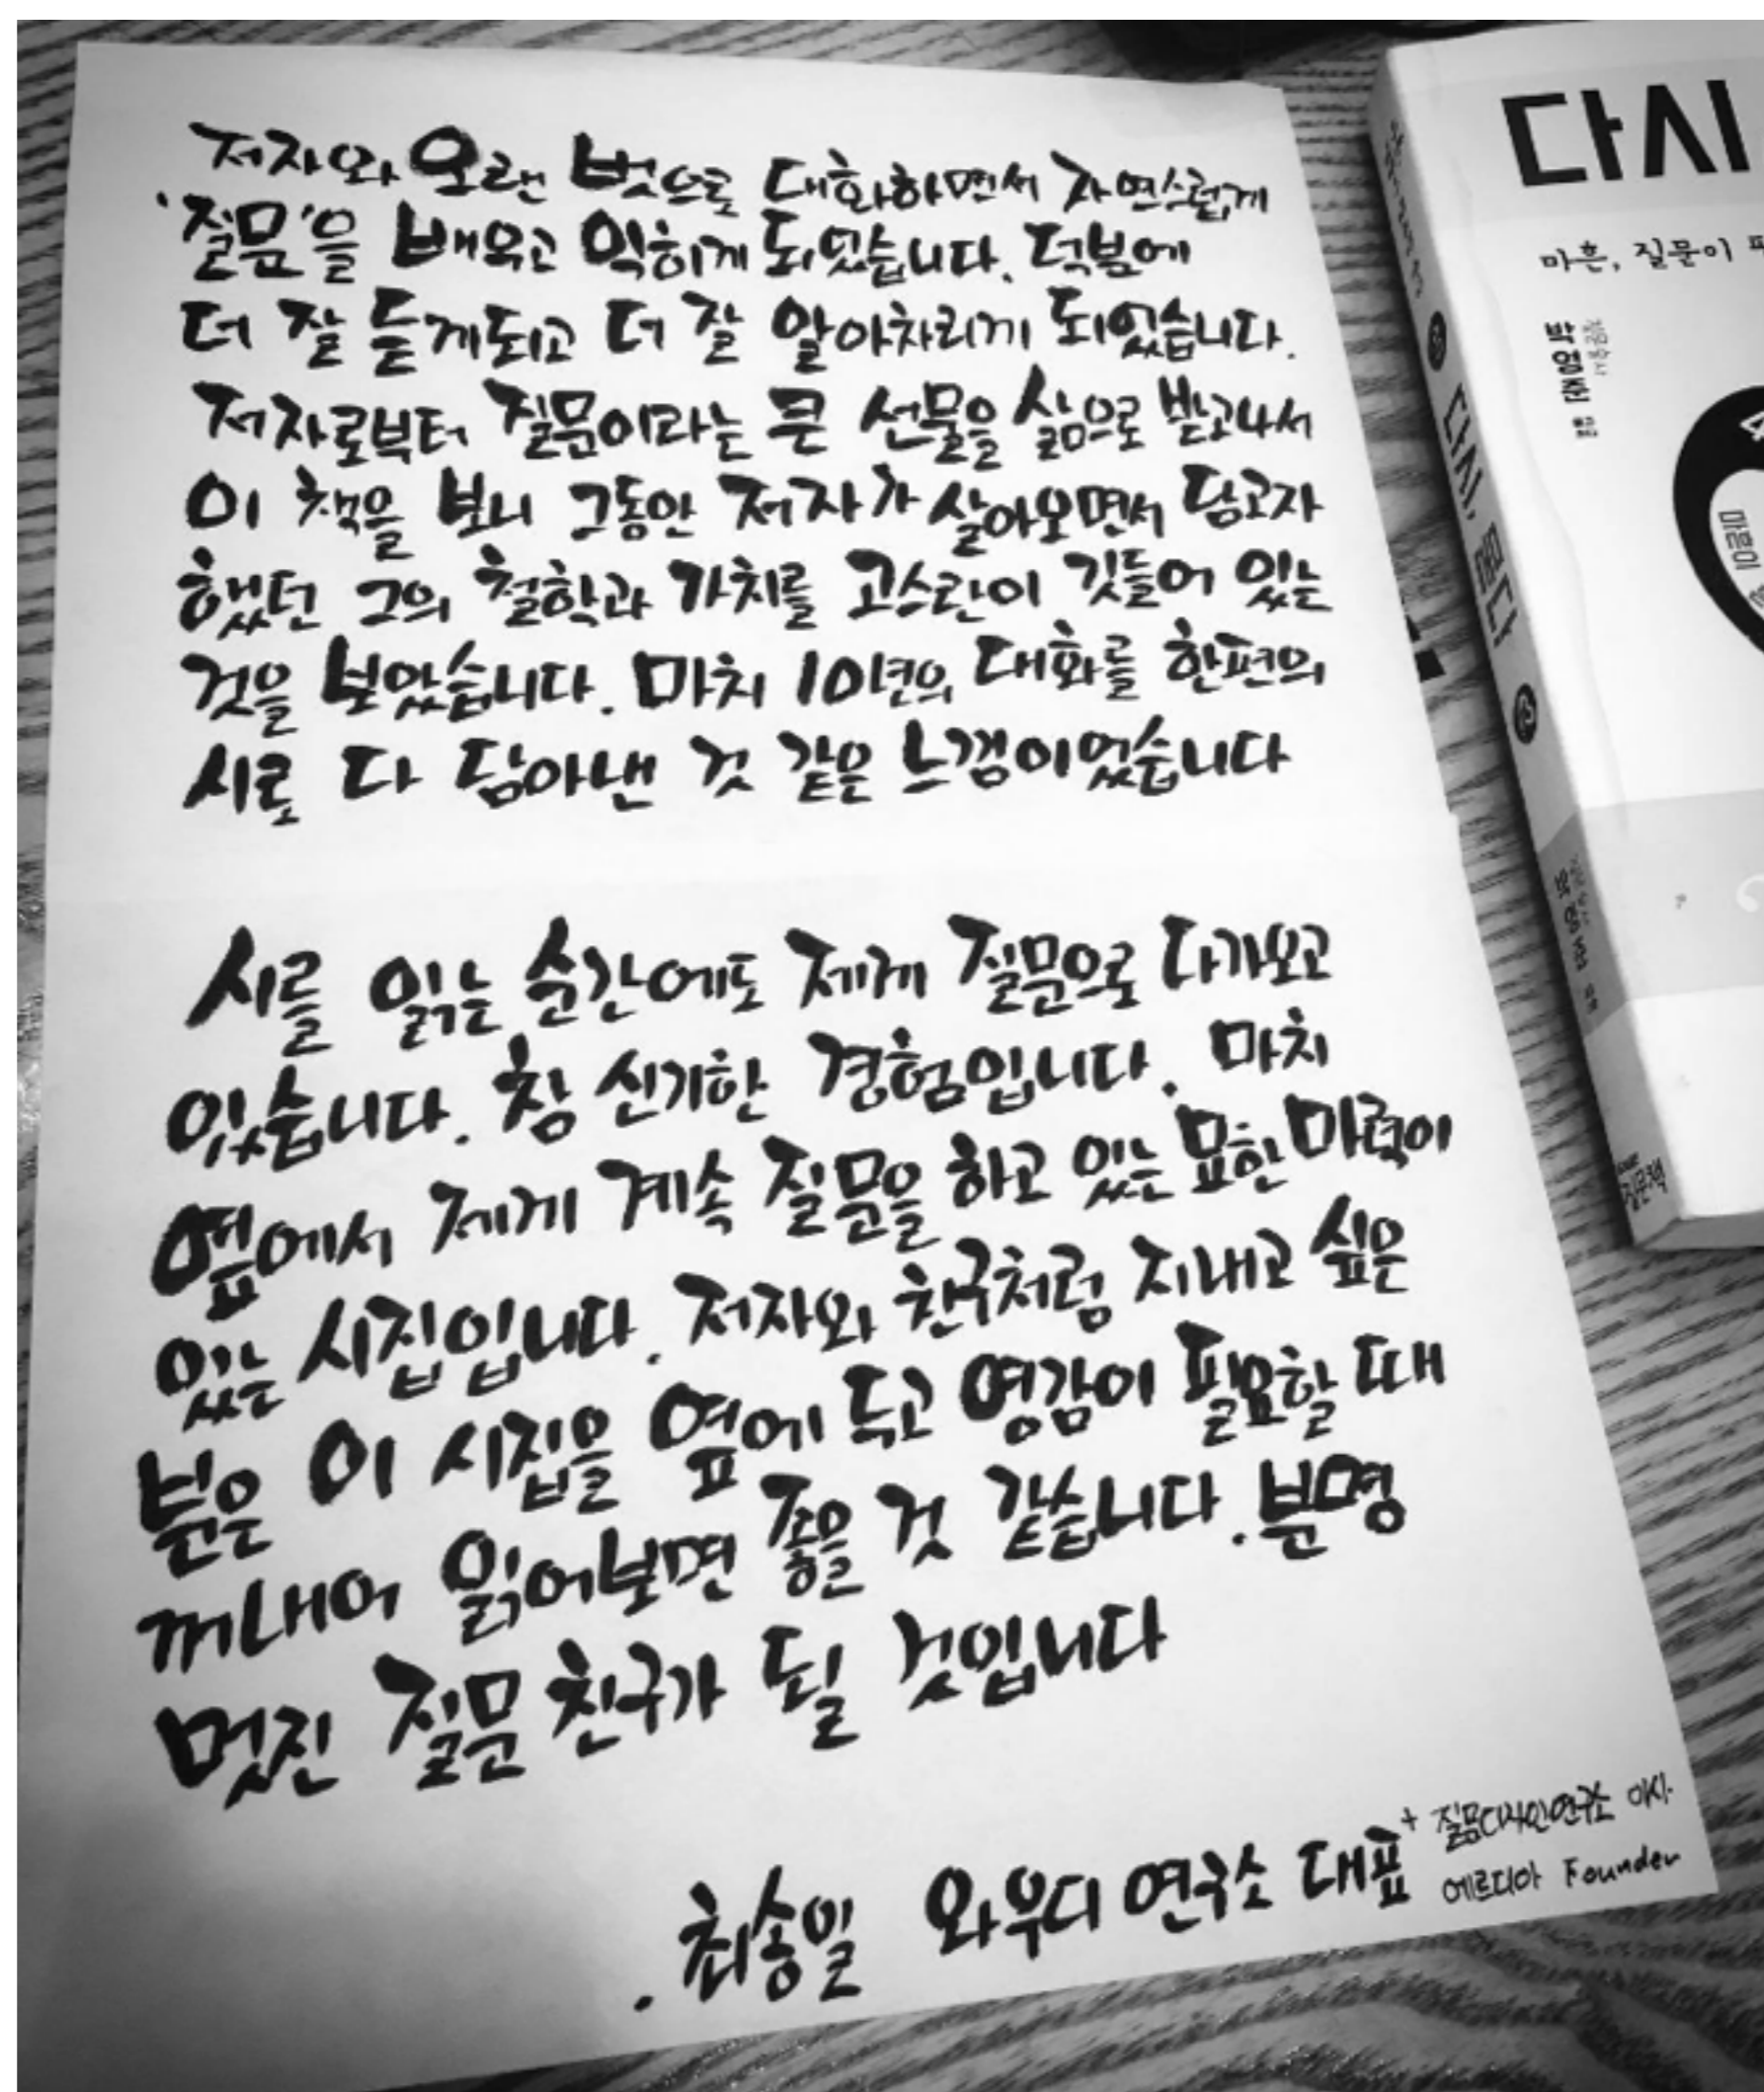 저자와 오랜 벗으로 대화하면서 자연스럽게
'질문'을 배우고 익히게 되었습니다. 덕분에
더 잘 듣게되고 더 잘 알아차리게 되었습니다.
저자로부터 질문이라는 큰 선물을 삶으로 받고나서
이 책을 보니 그동안 저자가 살아오면서 담고자
했던 그의 철학과 가치를 고스란이 깃들어 있는
것을 보았습니다. 마치 10년의 대화를 한편의
시로 다 담아낸 것 같은 느낌이었습니다
시를 읽는 순간에도 제게 질문으로 다가오고
있습니다. 참 신기한 경험입니다. 마치
옆에서 제게 계속 질문을 하고 있는 묘한 마력이
있는 시집입니다. 저자와 친구처럼 지내고 싶은
분은 이 시집을 옆에 두고 영감이 필요할 때
꺼내어 읽어보면 좋을 것 같습니다. 분명
멋진 질문 친구가 될 것입니다
. 최송일 와우디 연구소 대표
+ 질문디자인연구소 이사
에르디아 Founder
다시,
마흔, 질문이
박영준
다시, 묻다
마음이
질문책